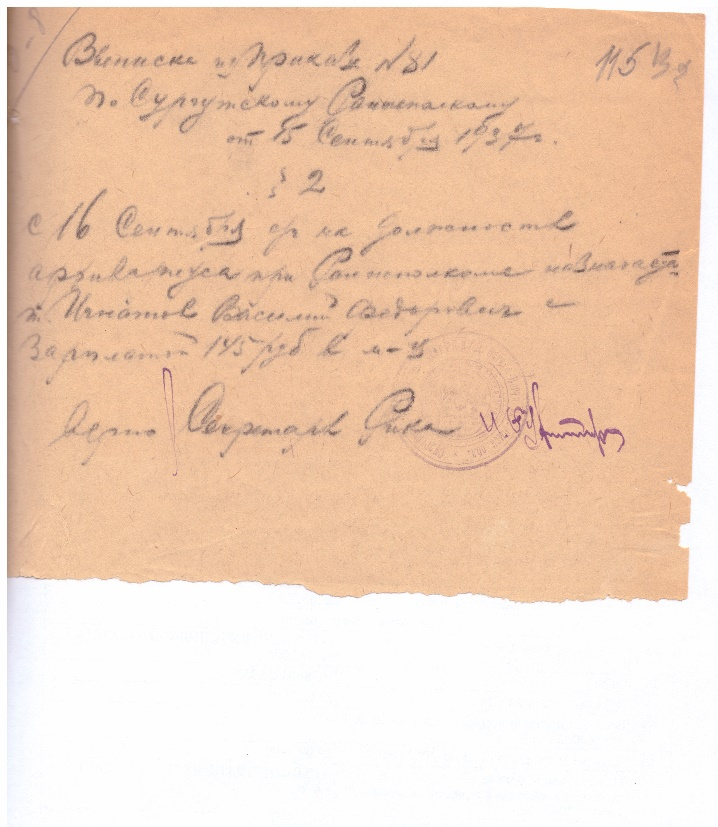 115
Выписка из Приказа № 81
По Сургутскому Райисполкому
от 15 Сентября 1937 г.
§ 2
с 16 Сентября с/г на должность
архивариуса при Райисполкоме назначается
т. Игнатов Василий Федорович с
Зарплатой 145 руб в м-ц
Верно Секретарь Рика